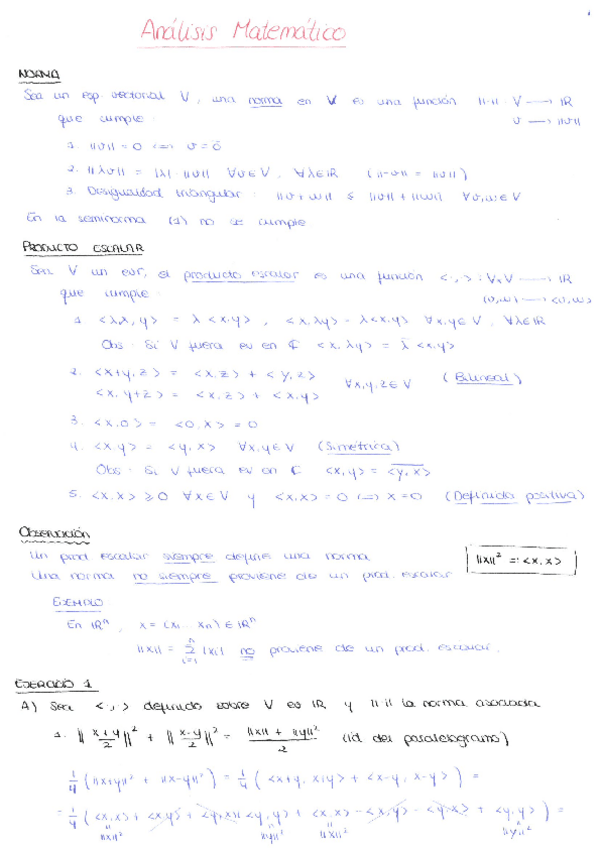 Análisis Matemático
NORMA
Sea un esp vectorial V, una norma en V es una función ||·|| V → IR
que cumple: v → ||v||
1. ||v|| = 0 <=> v = 0
2. ||λv|| = |λ|·||v|| ∀v∈V, ∀λ∈IR (||-v|| = ||v||)
3. Desigualdad triangular: ||v+w|| ≤ ||v|| + ||w|| ∀v,w∈V
En la seminorma (1) no se cumple
PRODUCTO ESCALAR
Sea V un evr, el producto escalar es una función <·,·> : V×V → IR
que cumple: (v,w) → <v,w>
1. <λx,y> = λ<x,y>, <x,λy> = λ<x,y> ∀x,y∈V, ∀λ∈IR
Obs: Si V fuera ev en ℂ <x,λy> = λ̄<x,y>
2. <x+y,z> = <x,z> + <y,z> ∀x,y,z∈V (Bilineal)
<x,y+z> = <x,z> + <x,y>
3. <x,0> = <0,x> = 0
4. <x,y> = <y,x> ∀x,y∈V (Simétrica)
Obs: Si V fuera ev en ℂ <x,y> = \overline{<y,x>}
5. <x,x> ≥ 0 ∀x∈V y <x,x> = 0 <=> x = 0 (Definida positiva)
Observación
Un prod. escalar siempre define una norma ||x||² =: <x,x>
Una norma no siempre proviene de un prod. escalar
EJEMPLO
En IRⁿ, x = (x₁...xₙ) ∈ IRⁿ
||x|| = Σ_{i=1}^{n} |xᵢ| no proviene de un prod. escalar.
EJERCICIO 1
A) Sea <·,·> definido sobre V ev IR y || || la norma asociada
1. ||(x+y)/2||² + ||(x-y)/2||² = (||x||² + ||y||²)/2 (id. del paralelogramo)
1/4 (||x+y||² + ||x-y||²) = 1/4 (<x+y, x+y> + <x-y, x-y>) =
= 1/4 (<x,x> + <x,y> + <y,x> + <y,y> + <x,x> - <x,y> - <y,x> + <y,y>) =
||x||² ||y||² ||x||² ||y||²